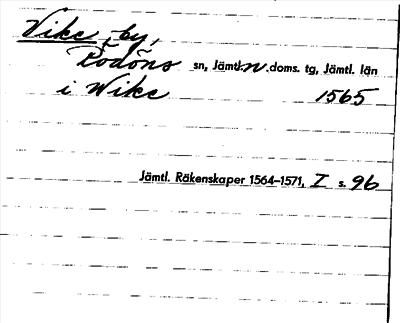 Vike, by,
Rödöns sn, Jämtl. n. doms. tg, Jämtl. län
i Wike 1565
Jämtl. Räkenskaper 1564–1571, I s. 96